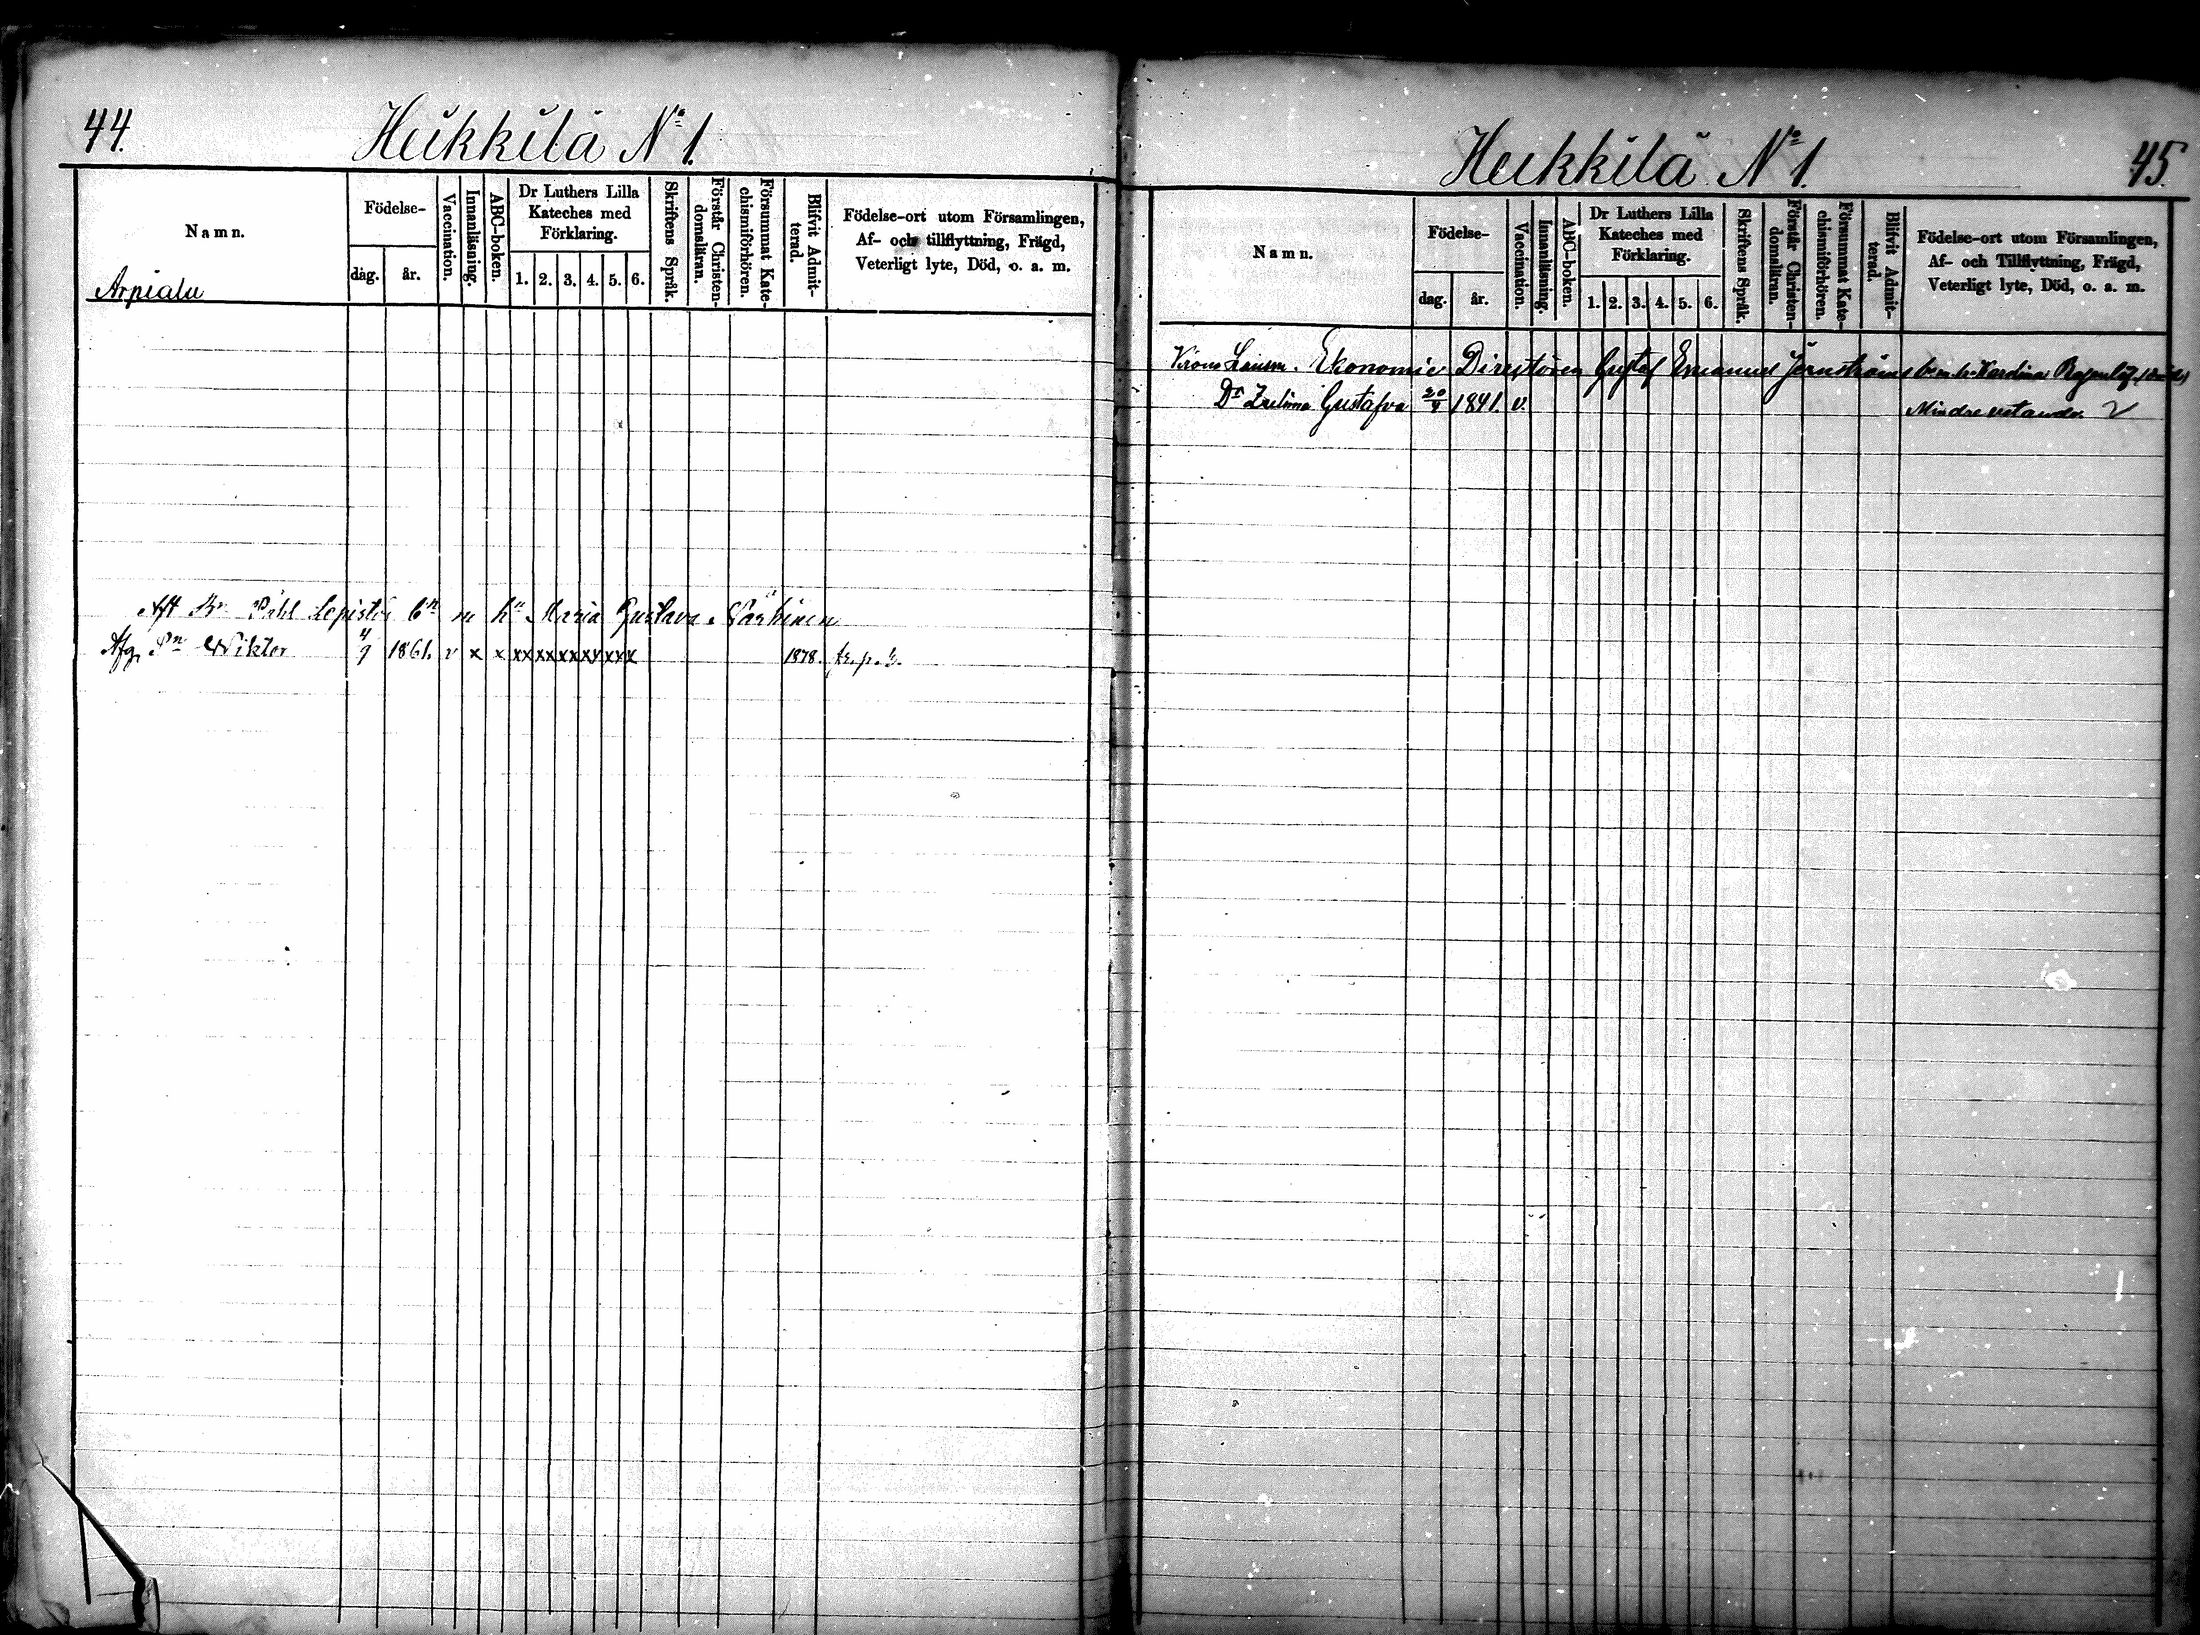 44.
Heikkilä N:o 1.
Namn.
Födelse-
dag.
år.
Vaccination.
Innanläsning.
ABC-boken.
Dr Luthers Lilla
Kateches med
Förklaring.
1. 2. 3. 4. 5. 6.
Skriftens Språk.
Förstår Christen-
domsläran.
Försummat Kate-
chismiförhören.
Blifvit Admit-
terad.
Födelse-ort utom Församlingen,
Af- och tillflyttning, Frägd,
Veterligt lyte, Död, o. a. m.
Arpiala
Aft Påhl Lepistös bn m hn Maria Gustava
Afg. Sn Wiktor 4/9 1861. v x x xx xx xx xx xxx 1878.
Heikkilä N:o 1.
45.
Namn.
Födelse-
dag.
år.
Vaccination.
Innanläsning.
ABC-boken.
Dr Luthers Lilla
Kateches med
Förklaring.
1. 2. 3. 4. 5. 6.
Skriftens Språk.
Förstår Christen-
domsläran.
Försummat Kate-
chismiförhören.
Blifvit Admit-
terad.
Födelse-ort utom Församlingen,
Af- och Tillflyttning, Frägd,
Veterligt lyte, Död, o. a. m.
Ekonomie Direktören Gustaf Emanuel Jernströms b. m. h.
Dr Gustafva 20/4 1841. v. Mindre vetande.